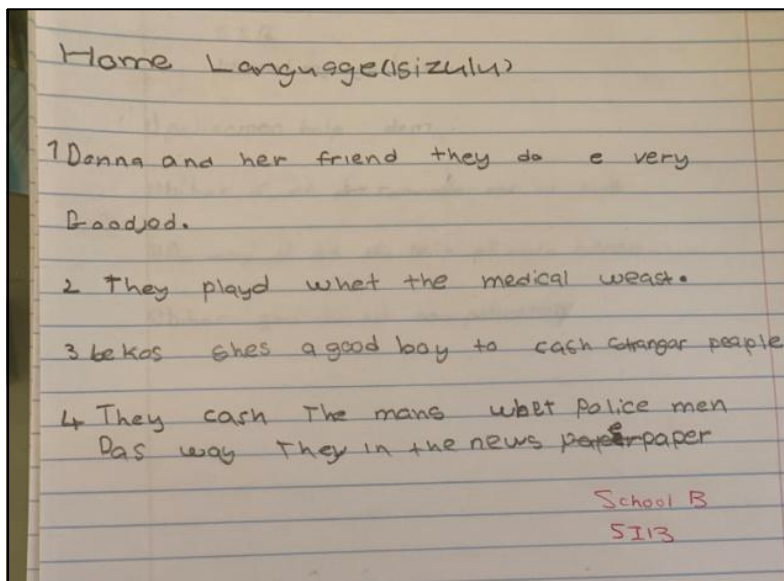 Home Language(isizulu)
1 Donna and her friend they do e very
Goodjod.
2 They playd whet the medical weast.
3 bekos shes a good boy to cash strangar people
4 They cash The mans whet Police men
Das way They in the news paper
School B
5I13